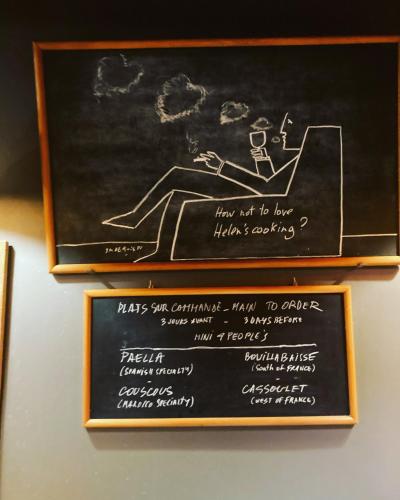 How not to love
Helen's cooking?
PLATS SUR COMMANDE - MAIN TO ORDER
3 JOURS AVANT - 3 DAYS BEFORE
MINI 4 PEOPLE'S
PAELLA
(SPANISH SPECIALTY)
BOUILLABAISSE
(SOUTH OF FRANCE)
COUSCOUS
(MAROCCO SPECIALTY)
CASSOULET
(WEST OF FRANCE)